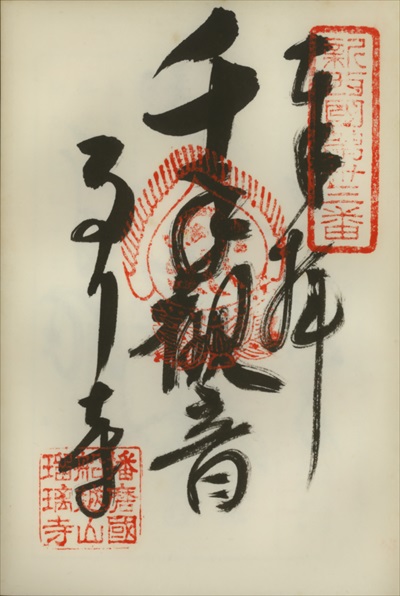 新西國第卅三番
奉拝
千手観音
るり寺
播磨國
船越山
瑠璃寺